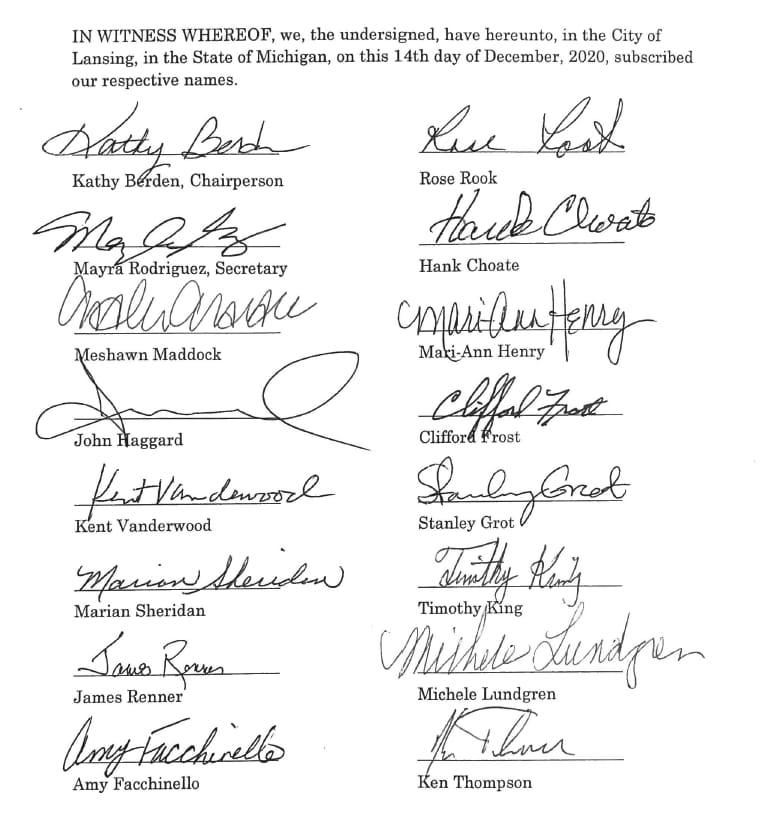 IN WITNESS WHEREOF, we, the undersigned, have hereunto, in the City of
Lansing, in the State of Michigan, on this 14th day of December, 2020, subscribed
our respective names.
Kathy Berden
Kathy Berden, Chairperson
Mayra Rodriguez, Secretary
Meshawn Maddock
John Haggard
Kent Vanderwood
Kent Vanderwood
Marian Sheridan
Marian Sheridan
James Renner
James Renner
Amy Facchinello
Amy Facchinello
Rose Rook
Rose Rook
Hank Choate
Hank Choate
Mari-Ann Henry
Mari-Ann Henry
Clifford Frost
Clifford Frost
Stanley Grot
Stanley Grot
Timothy King
Timothy King
Michele Lundgren
Michele Lundgren
Ken Thompson